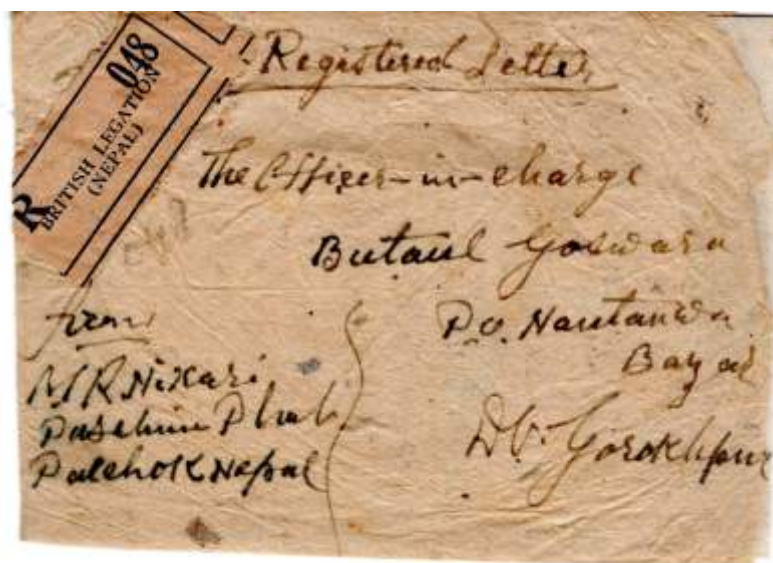 R 048
BRITISH LEGATION
(NEPAL)
Registered Letter
The Officer-in-charge
Butaul Goswara
P.O. Nautanwa
Bazar
Gorokhpur
from
M R
Paschim
Palchok Nepal